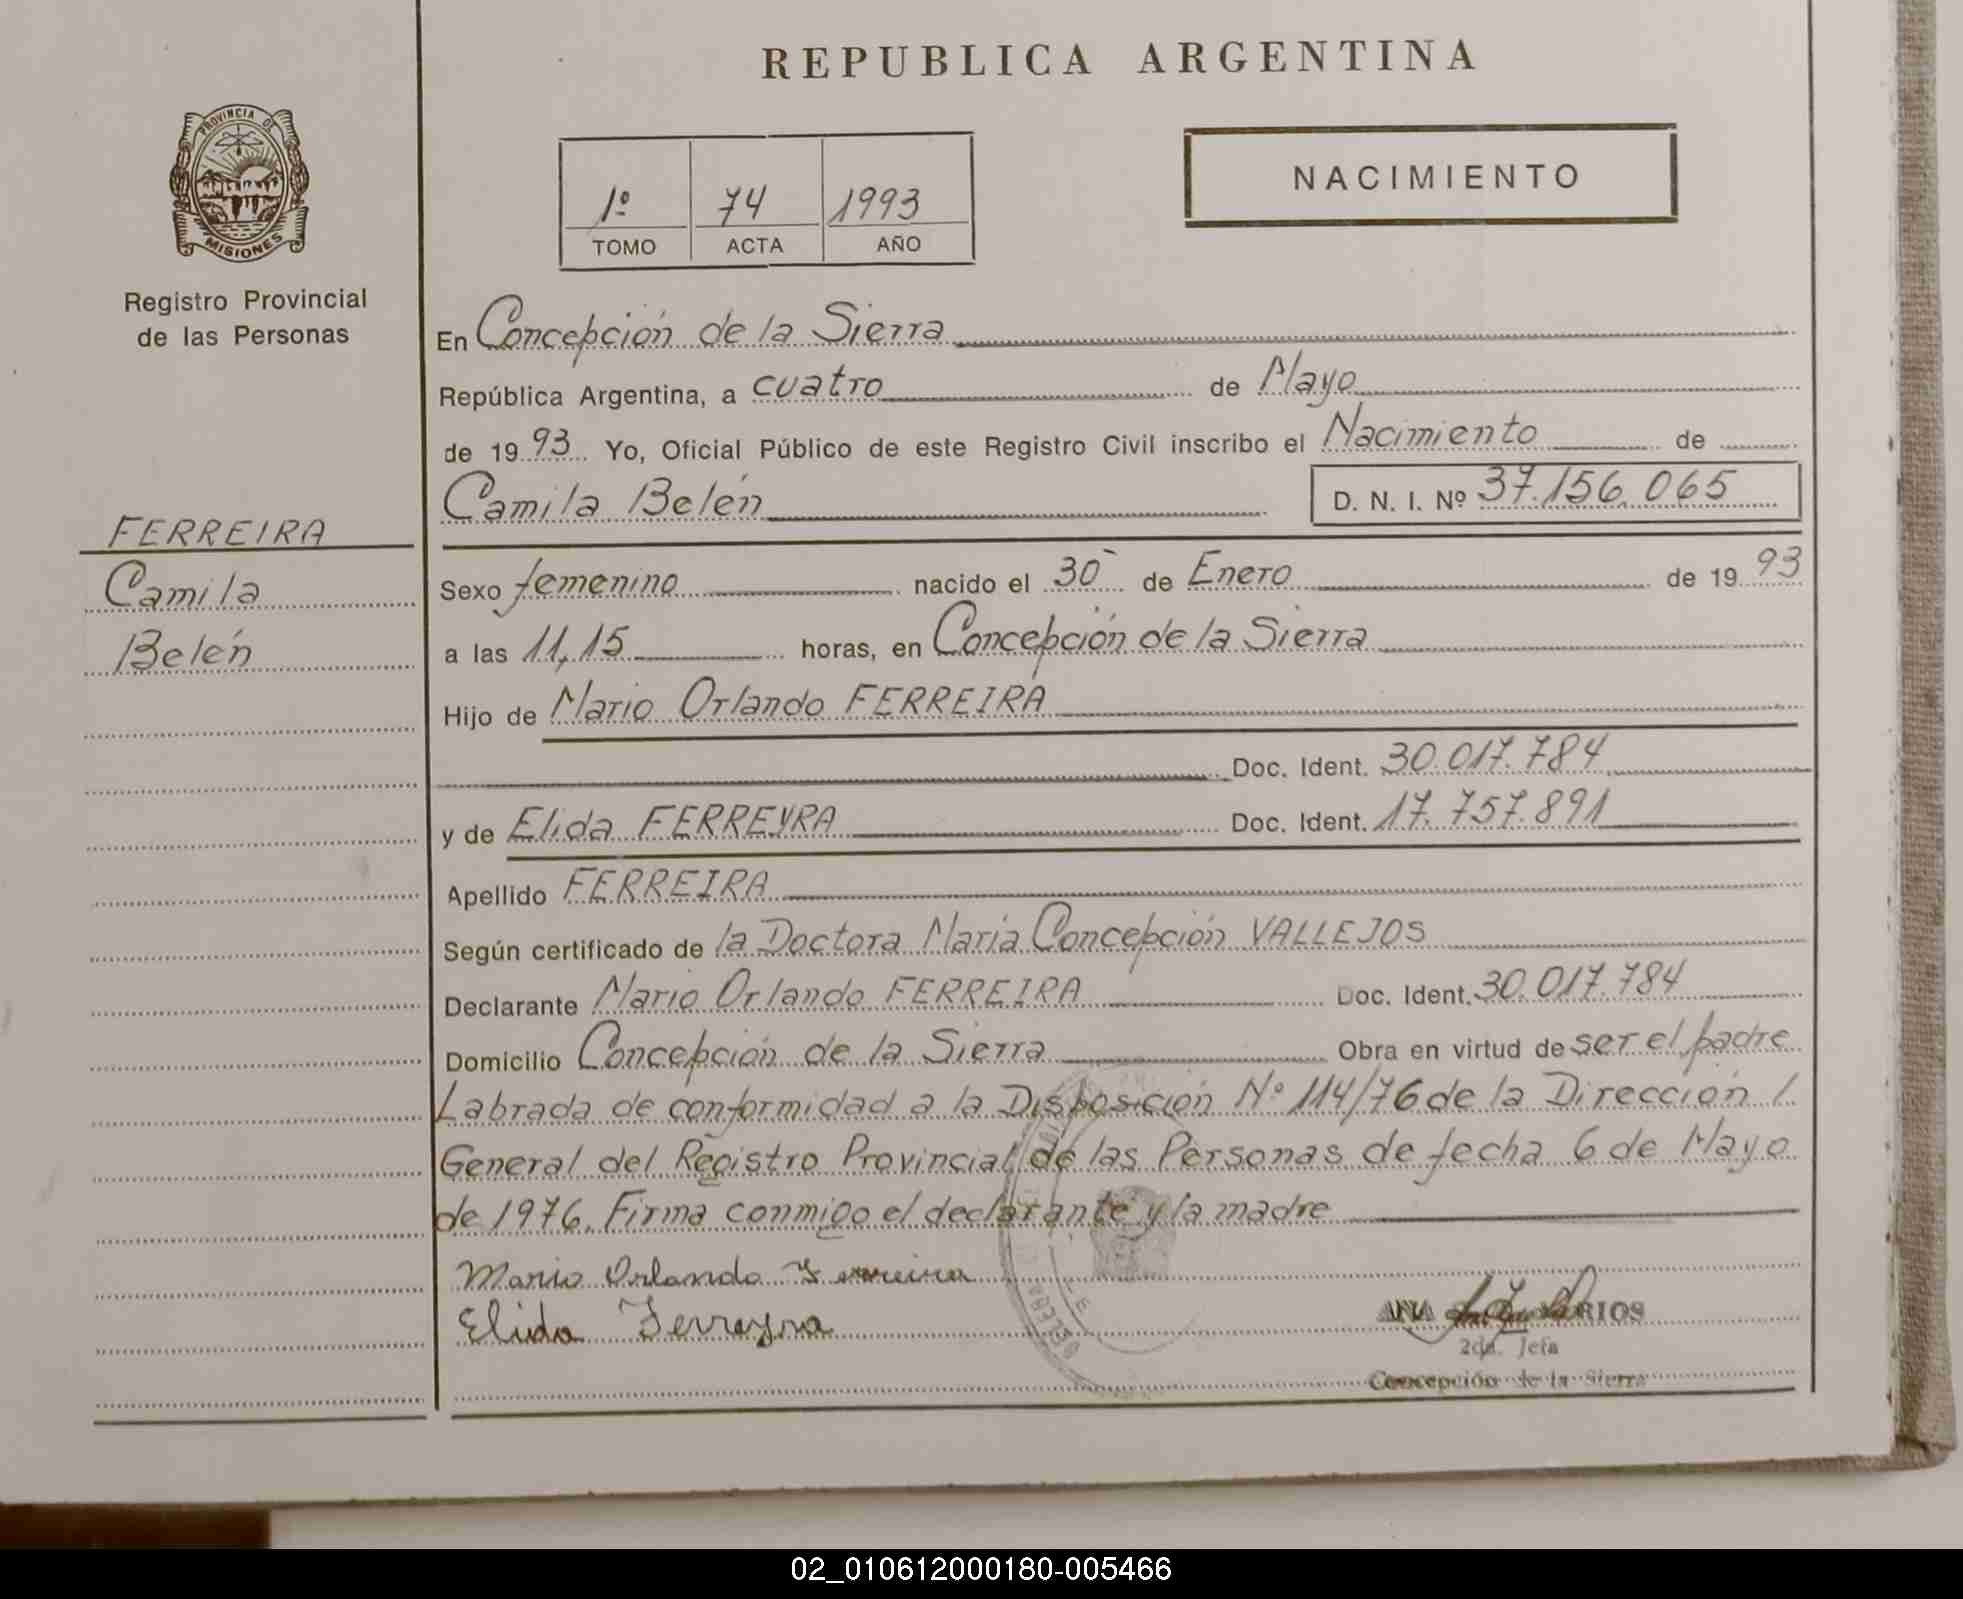 REPUBLICA ARGENTINA
PROVINCIA DE
MISIONES
Registro Provincial
de las Personas
1º 74 1993
TOMO ACTA AÑO
NACIMIENTO
En Concepción de la Sierra
República Argentina, a cuatro de Mayo
de 1993 Yo, Oficial Público de este Registro Civil inscribo el Nacimiento de
Camila Belén D. N. I. Nº 37.156.065
FERREIRA
Camila
Belén
Sexo femenino nacido el 30 de Enero de 1993
a las 11,15 horas, en Concepción de la Sierra
Hijo de Mario Orlando FERREIRA
Doc. Ident. 30.017.784
y de Elida FERREYRA Doc. Ident. 17.757.891
Apellido FERREIRA
Según certificado de la Doctora María Concepción VALLEJOS
Declarante Mario Orlando FERREIRA Doc. Ident. 30.017.784
Domicilio Concepción de la Sierra Obra en virtud de ser el padre
Labrada de conformidad a la Disposición Nº 114/76 de la Dirección /
General del Registro Provincial de las Personas de fecha 6 de Mayo
de 1976. Firma conmigo el declarante y la madre
Mario Orlando Ferreira
Elida Ferreyra
ANA RIOS
2da. Jefa
Concepción de la Sierra
02_010612000180-005466